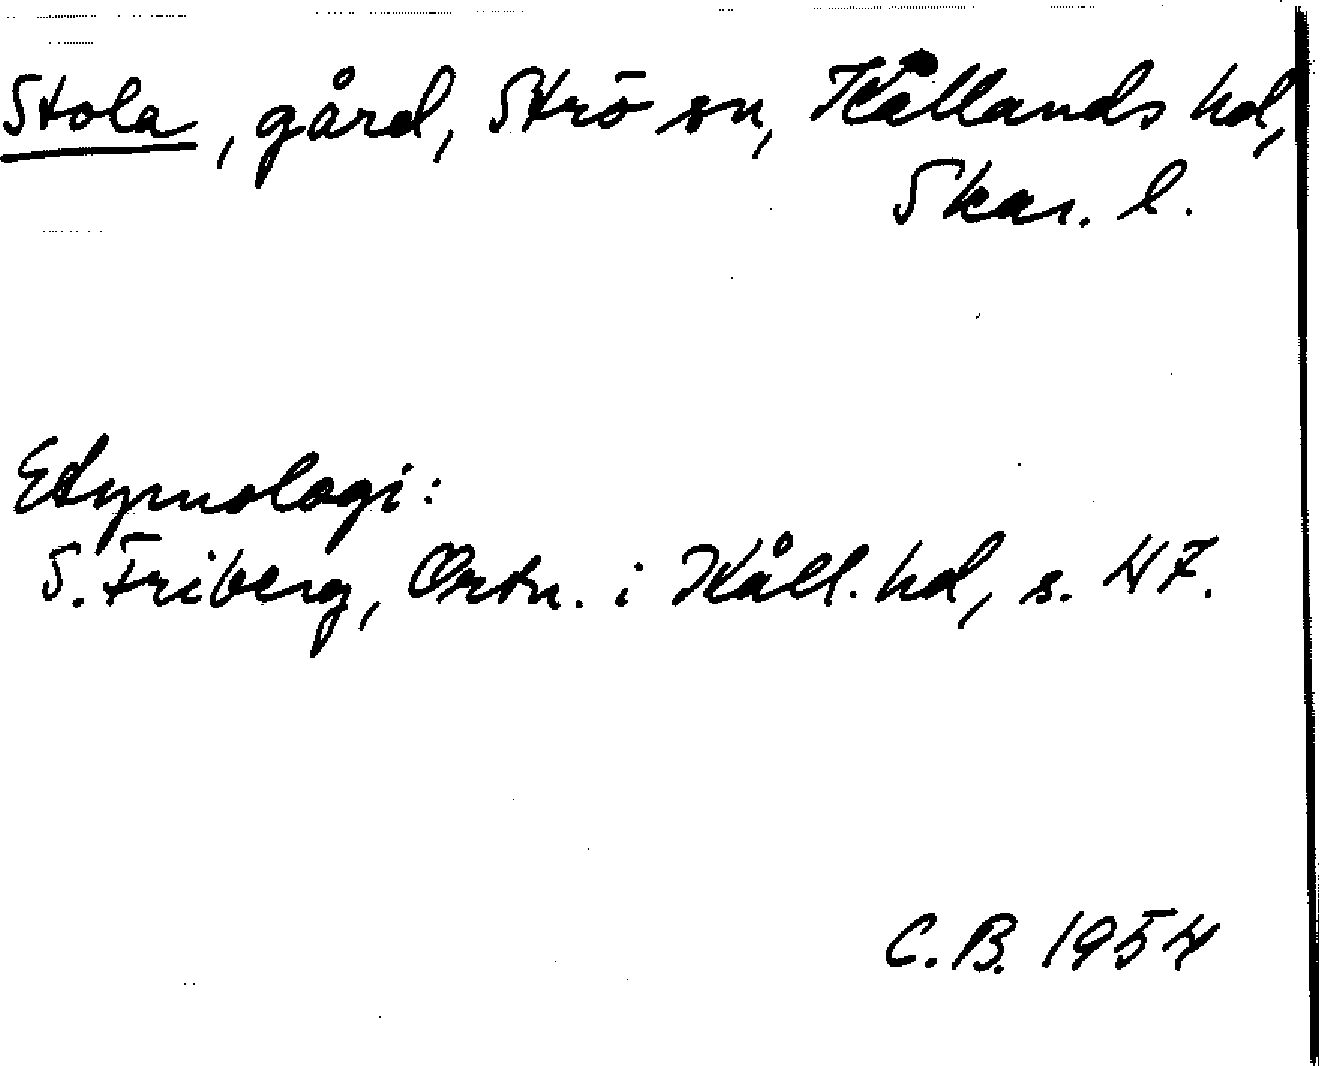 Stola, gård, Strö sn, Kållands hd,
Skar. l.
Etymologi:
S. Friberg, Ortn. i Kåll. hd, s. 47.
C.B. 1954